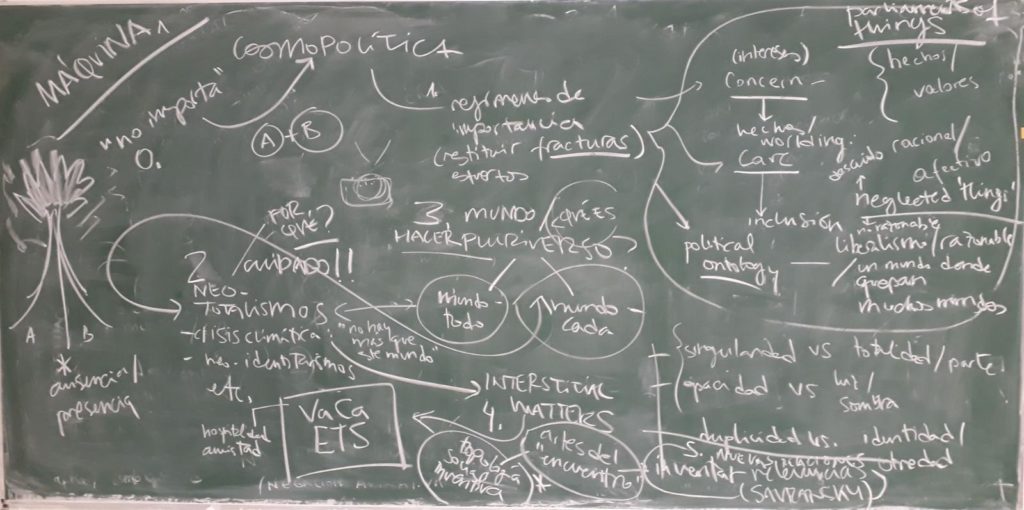 MÁQUINA 1
COSMOPOLÍTICA
"uno importa"
0.
A + B
1
regímenes de
importancia
(restituir fracturas)
A
B
*
ausencia/
presencia
¿POR
QUÉ?
2 / CUIDADO!!
NEO-
TOTALISMOS
- crisis climática:
- neo-identitarismos
etc.
"no hay
más que
este mundo"
3 MUNDO
¿QUÉ ES
HACER PLURIVERSO?
mundo-
todo
mundo-
cada
INTERSTITIAL
4. MATTERS
VaCa
ETS
hospitalidad
amistad
topología
*
artes del
encuentro
(intereses)
Concern -
hechos/
worlding:
Care
inclusión
political
ontology
parliament of
things
hechos/
valores
descuido racional/
afectivo
neglected 'things'
liberalismo/razonable
/ un mundo donde
quepan
muchos mundos
singularidad vs totalidad/parte
opacidad vs luz/
sombra
duplicidad vs. identidad/
otredad
5. nuevas relaciones
inventar relevancias
(SAVRANSKY)